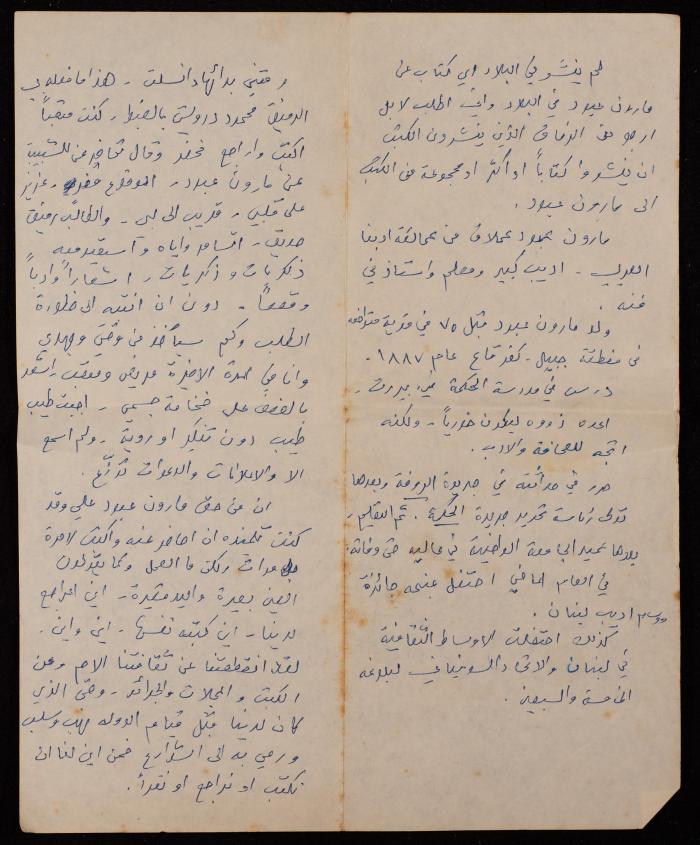 لم ينشر في البلاد اي كتاب عن
مارون عبود في البلاد واني اطلب لا بل
ارجو من الرفاق الذين ينشرون الكتب
ان ينشروا كتاباً او اكثر او مجموعة من الكتب
الى مارون عبود.
مارون عبود عملاق من عمالقة ادبنا
العربي - اديب كبير ومعلم واستاذ في
فنه.
ولد مارون عبود قبل ٧٥ في قرية متواضعة
في منطقة جبيل - كفرقاع عام ١٨٨٧ -
درس في مدرسة الحكمة في بيروت -
اعده ذووه ليكون خورياً - ولكنه
اتجه للصحافة والادب.
حرر في حداثته في جريدة الروضة وبعدها
تولى رئاسة تحرير جريدة الحكمة. ثم التعليم -
بعدها عميد الجامعة الوطنية في عاليه حتى وفاته.
في العام الماضي احتفل بمنحه جائزة
وسام اديب لبنان.
كذلك احتفلت الاوساط الثقافية
في لبنان والاتحاد السوفياتي لبلوغه
الخامسة والسبعين.
رمتني بدائها وانسلت - هذا ما فعله بي
الرفيق محمود درويش بالضبط - كنت متعباً
اكتب واراجع فحضر وقال تحاضر من للشبيبة
عن مارون عبود - الموضوع - عزيز
على قلبي - قريب الى لبي - والطالب رفيق
صديق - اتسامر واياه واستعيد معه
ذكريات وذكريات - اشعاراً وادباً
وقصصاً - دون ان انتبه الى خطورة
الطلب وكم سيأخذ من وقتي وجهدي
وانا في المدة الاخيرة مريض ومتعب - اشعر
بالضعف على ضخامة جسمي - اجبت طيب
طيب دون تفكير او روية - ولم اسمع
الا والاعلانات والدعوات توزع.
ان من حق مارون عبود علي وقد
كنت تلميذه ان احاضر عنه واكتب لا مرة
بل مرات ولكن ما العمل وكما يقولون
العين بصيرة واليد قصيرة - اين المراجع
لدينا - اين كتبه نفسها - اين واين.
لقد انقطعنا عن ثقافتنا الام وعن
الكتب والمجلات والجرائد - وحتى الذي
كان لدينا قبل قيام الدولة نهب وسلب
ورمي به الى الشوارع فمن اين لنا ان
نكتب او نراجع او نقرأ.